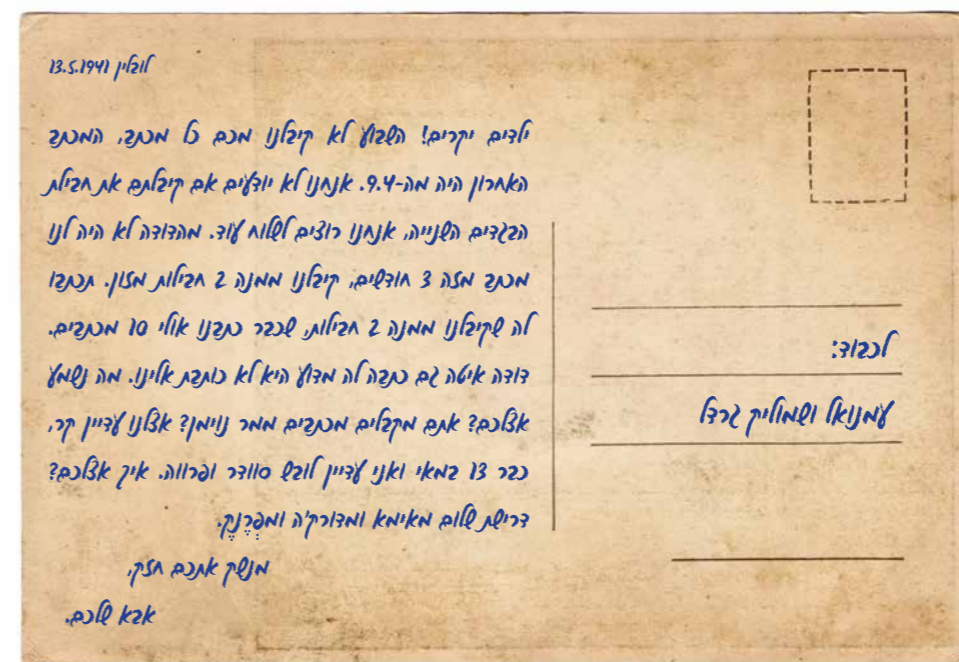 לובלין 13.5.1941
ילדים יקרים! השבוע לא קיבלנו מכם כל מכתב, המכתב
האחרון היה מה-9.4. אנחנו לא יודעים אם קיבלתם את חבילת
הבגדים השנייה, אנחנו רוצים לשלוח עוד. מהדודה לא היה לנו
מכתב מזה 3 חודשים, קיבלנו ממנה 2 חבילות מזון. תכתבו
לה שקיבלנו ממנה 2 חבילות, שכבר כתבנו אולי 10 מכתבים.
דודה איטה גם כתבה לה מדוע היא לא כותבת אלינו. מה נשמע
אצלכם? אתם מקבלים מכתבים ממר נוימן? אצלנו עדיין קר,
כבר 13 במאי ואני עדיין לובש סוודר ופרווה. איך אצלכם?
דרישת שלום מאימא ומדורק'ה ומפְרֶנֶק.
מנשק אתכם חזק,
אבא שלכם.
לכבוד:
עמנואל ושמוליק גרדל